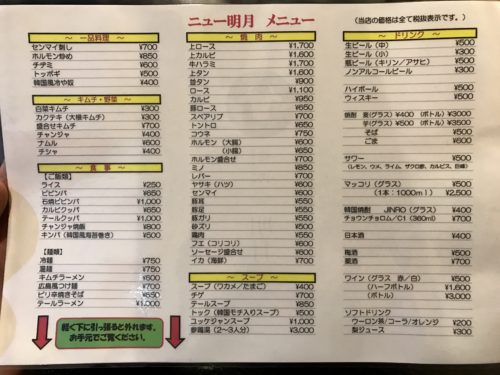 ニュー明月 メニュー
(当店の価格は全て税抜表示です。)
～ 一品料理 ～
センマイ刺し ¥700
ホルモン炒め ¥850
チヂミ ¥600
トッポギ ¥500
韓国風冷や奴 ¥400
～ キムチ・野菜 ～
白菜キムチ ¥300
カクテキ(大根キムチ) ¥300
盛合せキムチ ¥700
チャンジャ ¥400
ナムル ¥600
チシャ ¥400
～ 食 事 ～
【ご飯類】
ライス ¥250
ビビンバ ¥650
石焼ビビンバ ¥1,000
カルビクッパ ¥650
テールクッパ ¥1,000
チャンジャ焼飯 ¥800
キンパ(韓国風海苔巻き) ¥500
【麺類】
冷麺 ¥750
温麺 ¥750
キムチラーメン ¥600
広島風つけ麺 ¥700
ピリ辛焼きそば ¥650
テールラーメン ¥1,000
軽く下に引っ張ると外れます。
お手元でご覧ください。
～ 焼 肉 ～
上ロース ¥1,700
上カルビ ¥1,600
牛ハラミ ¥1,700
上タン ¥1,600
並タン ¥900
ロース ¥1,100
カルビ ¥950
豚ロース ¥700
スペアリブ ¥700
トントロ ¥650
コウネ ¥750
ホルモン(大腸) ¥600
(小腸) ¥650
ホルモン盛合せ ¥700
ミノ ¥850
レバー ¥700
ヤサキ(ハツ) ¥600
センマイ ¥600
豚耳 ¥550
豚足 ¥550
豚ガリ ¥550
砂ズリ ¥500
鶏肉 ¥550
フエ(コリコリ) ¥600
ソーセージ盛合せ ¥600
イカ(海鮮) ¥700
～ スープ ～
スープ(ワカメ/たまご) ¥400
チゲ ¥700
テールスープ ¥850
トック(韓国モチ入りスープ) ¥650
ユッケジャンスープ ¥1,000
参鶏湯(2～3人分) ¥3,000
～ ドリンク ～
生ビール(中) ¥500
生ビール(小) ¥300
瓶ビール(キリン/アサヒ) ¥500
ノンアルコールビール ¥300
ハイボール ¥500
ウィスキー ¥500
焼酎 麦(グラス)¥400 (ボトル)¥3000
芋(グラス)¥500 (ボトル)¥3500
そば ¥500
ごま ¥600
サワー ¥500
(レモン、ウメ、ライム、ザクロ酢、カルピス、巨峰)
マッコリ(グラス) ¥500
(1本:1000ml) ¥2,500
韓国焼酎 JINRO(グラス) ¥400
チョウンチョロム/C1(360ml) ¥700
日本酒 ¥400
梅酒 ¥500
ワイン(グラス 赤/白) ¥500
(ハーフボトル) ¥1,500
(ボトル) ¥3,000
ソフトドリンク
ウーロン茶/コーラ/オレンジ ¥200
梨ジュース ¥300